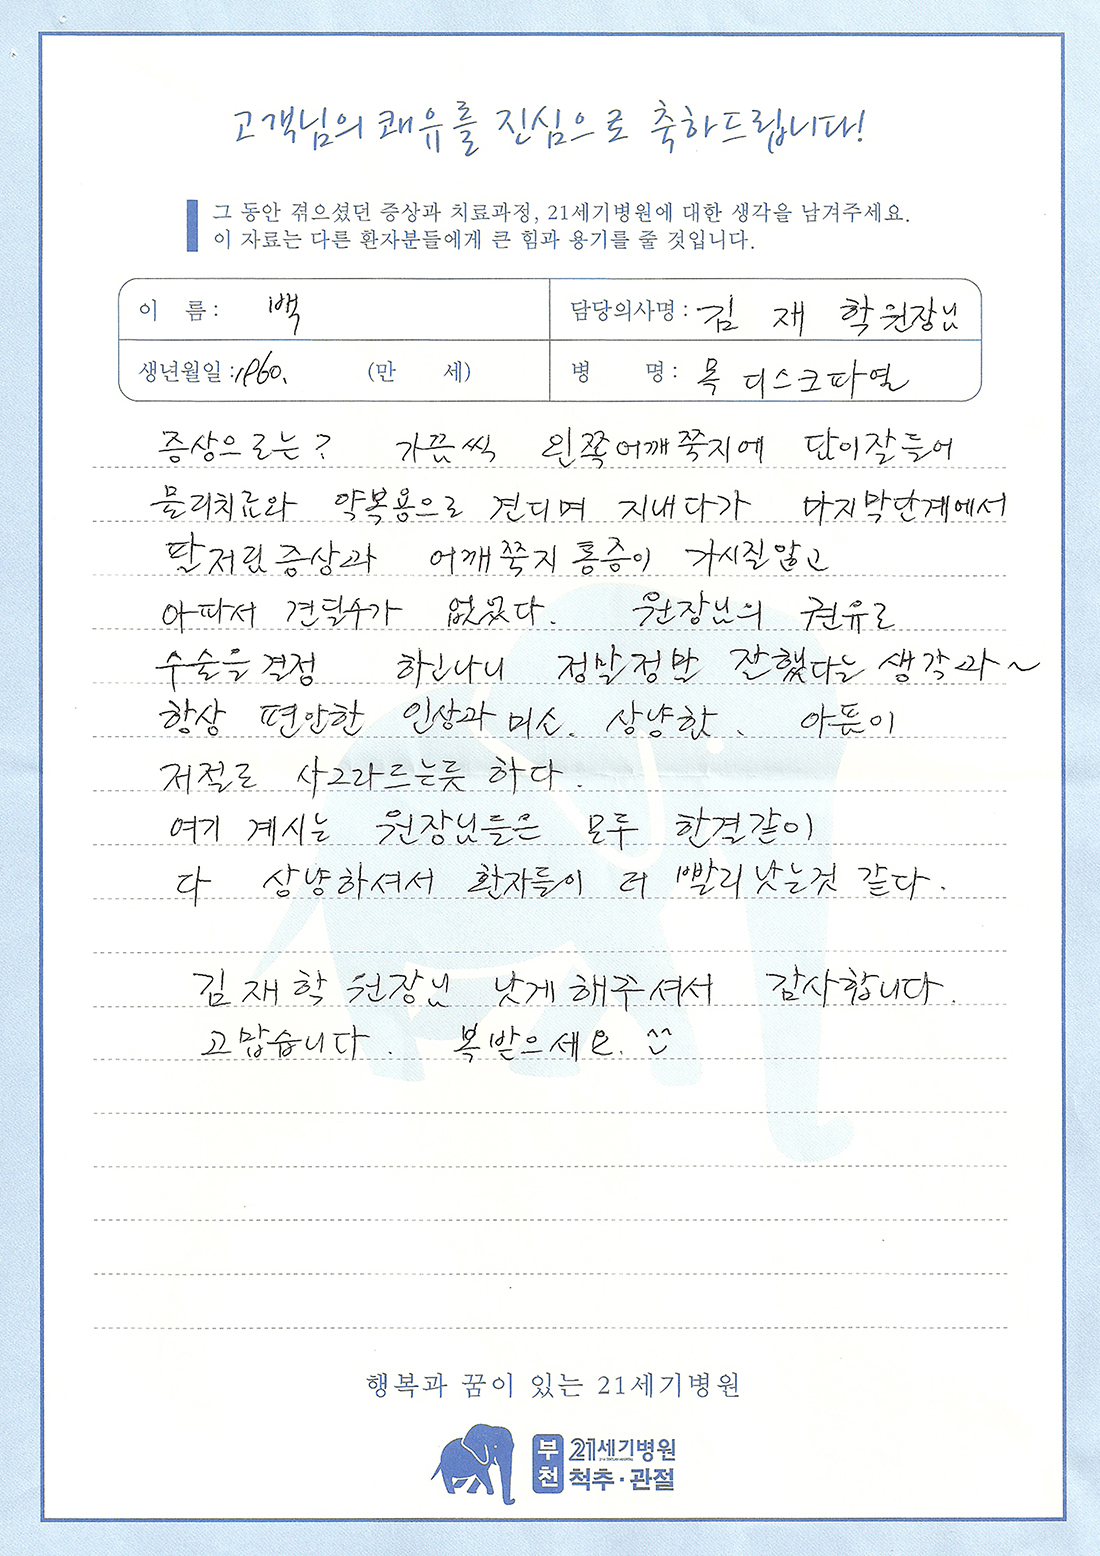 고객님의 쾌유를 진심으로 축하드립니다!
그 동안 겪으셨던 증상과 치료과정, 21세기병원에 대한 생각을 남겨주세요.
이 자료는 다른 환자분들에게 큰 힘과 용기를 줄 것입니다.
이 름 : 백
담당의사명 : 김 재 학원장님
생년월일 : 1960. (만 세)
병 명 : 목 디스크파열
증상으로는? 가끔씩 왼쪽어깨쭉지에 담이잘들어
물리치료와 약복용으로 견디며 지내다가 마지막단계에서
팔저림증상과 어깨쭉지통증이 가시질않고
아파서 견딜수가 없었다. 원장님의 권유로
수술을결정 하고나니 정말정말 잘했다는 생각과~
항상 편안한 인상과 미소. 상냥함. 아픔이
저절로 사그라르는듯 하다.
여기 계시는 원장님들은 모두 한결같이
다 상냥하셔서 환자들이 더 빨리낫는것 같다.
김재학 원장님 낫게해주셔서 감사합니다.
고맙습니다. 복받으세요. ^^
행복과 꿈이 있는 21세기병원
부천 21세기병원
척추·관절